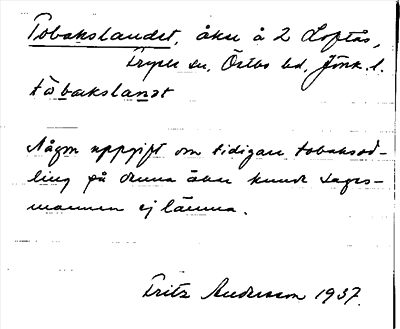 Tobakslandet, åker å 2 Loftås,
Tryser sn, Östbo hd, Jönk. l.
tóbakslanət
Någon uppgift om tidigare tobaksod-
ling på denna åker kunde sages-
mannen ej lämna.
Fritz Andersson 1937.